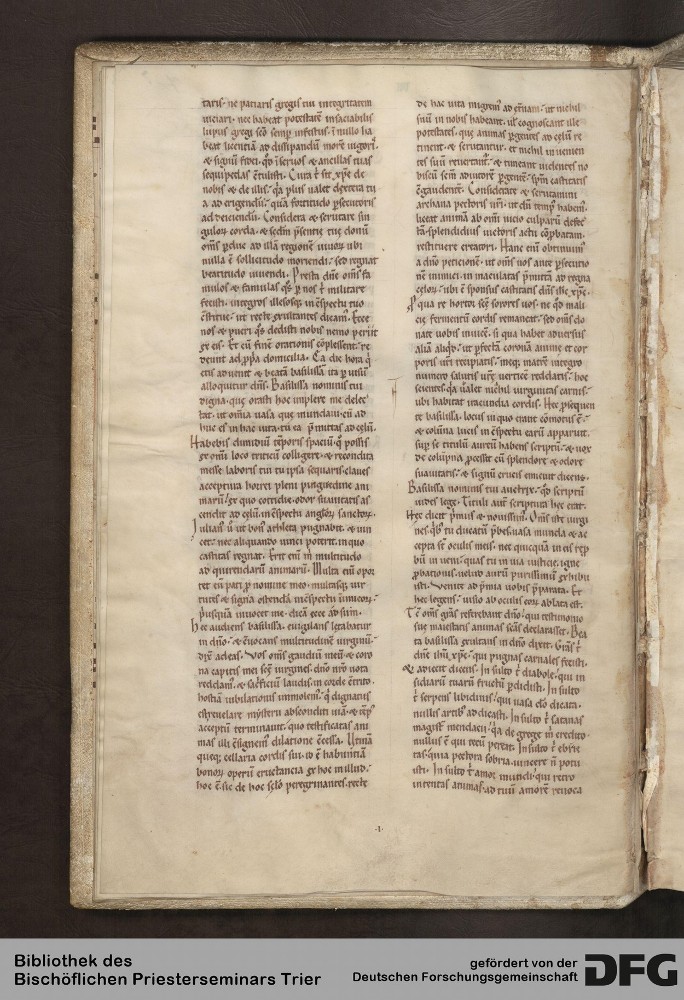 taris. ne patiaris gregis tui integritatem
uiciari. nec habeat potestatē insaciabilis
lupus gregi scō semp infestus. ī nullo ha
beat licentiā ad dissipandū morē uigori
& signū fidei. qd ī seruos & ancillas tuas
Cura t̄ sit xpe de
nobis & de illis. qa plus ualet dextera tu
a ad erigendū. quā fortitudo psecutoris
ad deiciendū. Considera & scrutare sin
gulor corda. &
oms pduc ad illā regionē uiuor ubi
nulla ē sollicitudo moriendi. sed regnat
beatitudo uiuendi. Presta dne oms fa
mulos & famulas qs p nos t̄ militare
fecisti. integros illesosq; in cspectu tuo
cstitue. ut recte exultantes dicam. Ecce
nos & pueri qs dedisti nobis nemo periit
ex eis. Et cū finē orationis cplessent. re
deunt ad ppa domicilia. Ea die hora
aduenit & beatā basilissā ita p uisū
alloquitur dns. Basilissa nominis tui
digna. que orasti hoc implere me delec
tat. ut omia uasa que mundaui. cū ad
huc es in hac uita. tu ea pmittas ad celū.
Habebis dimidiū tēporis spaciū. q possis
ex omi loco triticū colligere. & recondita
messe laboris tui tu ipsa sequaris. claues
acceptura horrei pleni pinguedine ani
marū. ex quo cottidie odor suauitatis as
cendit ad celū. in cspectu anglor sanctor.
Iulian u ut bon athleta pugnabit. & uin
cet. nec aliquando uinci poterit. in quo
castitas regnat. Erit enī m multitudo
ad quirendarū animarū. Multa enī opor
tet eū pati p nomine meo. multasq; uir
tutes & signa ostendā in cspectu inimicor.
Priusquā inuocet me. dicā ecce ad sum.
Hec audiens basilissa. euigilans letabatur
in dno. & cuocans multitudinē uirginū.
dixit ad eas. Vos oms gaudiū meū. & coro
na capitis mei scē uirgines. dno nro uota
reddam. & sacrificiū laudis in corde ctrito.
hostiā iubilationis immolem. q dignatus
ē reuelare mysteriū absconditi uia. & tēp
acceptū terminauit. quo testificatas ani
mas illi csignem dilatione ccessa. Vtinā
queq; cellaria cordis sui. id ē habundā
bonor operū eructancia ex hoc in illud.
hoc ē. sic de hoc sclo peregrinantes. recte
de hac uita migrem ad etnam. ut nichil
suū in nobis habeant. ut cognoscant ille
potestates. que animas pgentes ad celū re
tinent. & scrutantur. et nichil in uenien
tes suū reuertant. & timeant uidentes no
biscū sem adiutore pgente. spm castitatis
cgaudente. Considerate & scrutamini
archana pectoris uri. ut dū temp habem.
liceat animā ab omi uicio culparū defec
tā. splendidius uictoris actu cpbatam.
restituere creatori. Hanc enī obtinuim
a dno peticionē. ut oms uos ante psecutio
nē inimici. in maculatas pmittā ad regna
celor. ubi ē sponsus castitatis dns ihc xpc.
P qua re hortor scē sorores uos. ne qd mali
cie fermentū cordis remaneat. sed oms do
nate uobis inuicē. si qua habet aduersus
aliā aliqd. ut pfectā coronā anime et cor
poris uri recipiatis. meq; matrē integro
numero salutis ure uerticē reddatis. hoc
scientes. qa ualet nichil uirginitas carnis.
ubi habitat iracundia cordis. Hec psequen
te basilissa. locus in quo erant cmotus ē.
& colūna lucis in cspectu earū apparuit.
sup se titulū aureū habens scriptū. & uox
de colūna pcessit cū splendore & odore
suauitatis. & signū crucis eminuit dicens.
Basilissa nominis tui auctrix. qd scriptū
uides lege. Tituli aut scriptura hec erat.
Hec dicit pmus & nouissim. Oms iste uirgi
nes. qb tu ducatū pbes. uasa munda & ac
cepta st oculis meis. nec quicquā in eis rep
bū in ueni. quas tu in uia iusticie. igne
pbationis. uelud aurū purissimū exhibu
isti. Venite ad pmia uobis pparata. Et
hec legens. uisio ab oculis eor ablata est.
Tc oms gras referebant dno. qui testimonio
sue maiestatis animas scās declarasset. Bea
ta basilissa exultans in dno dixit. Gras t̄
dne ihu xpe. qui pugnas carnales fecisti.
& adiecit dicens. In sulto t̄ diabole. qui in
sidiarū tuarū fructū pdidisti. In sulto
t̄ serpens libidinis. qui uasa do dicata.
nullis artib addicasti. In sulto t̄ satanas
magistr mendacii. qa de grege m credito
nullus ē qui tecū pereat. In sulto t̄ ebrie
tas. quia pectora sobria. uincere n potu
isti. In sulto t̄ amor mundi. qui retro
intentas animas. ad tuū amorē reuoca
.I.
Bibliothek des
Bischöflichen Priesterseminars Trier
gefördert von der
Deutschen Forschungsgemeinschaft
DFG